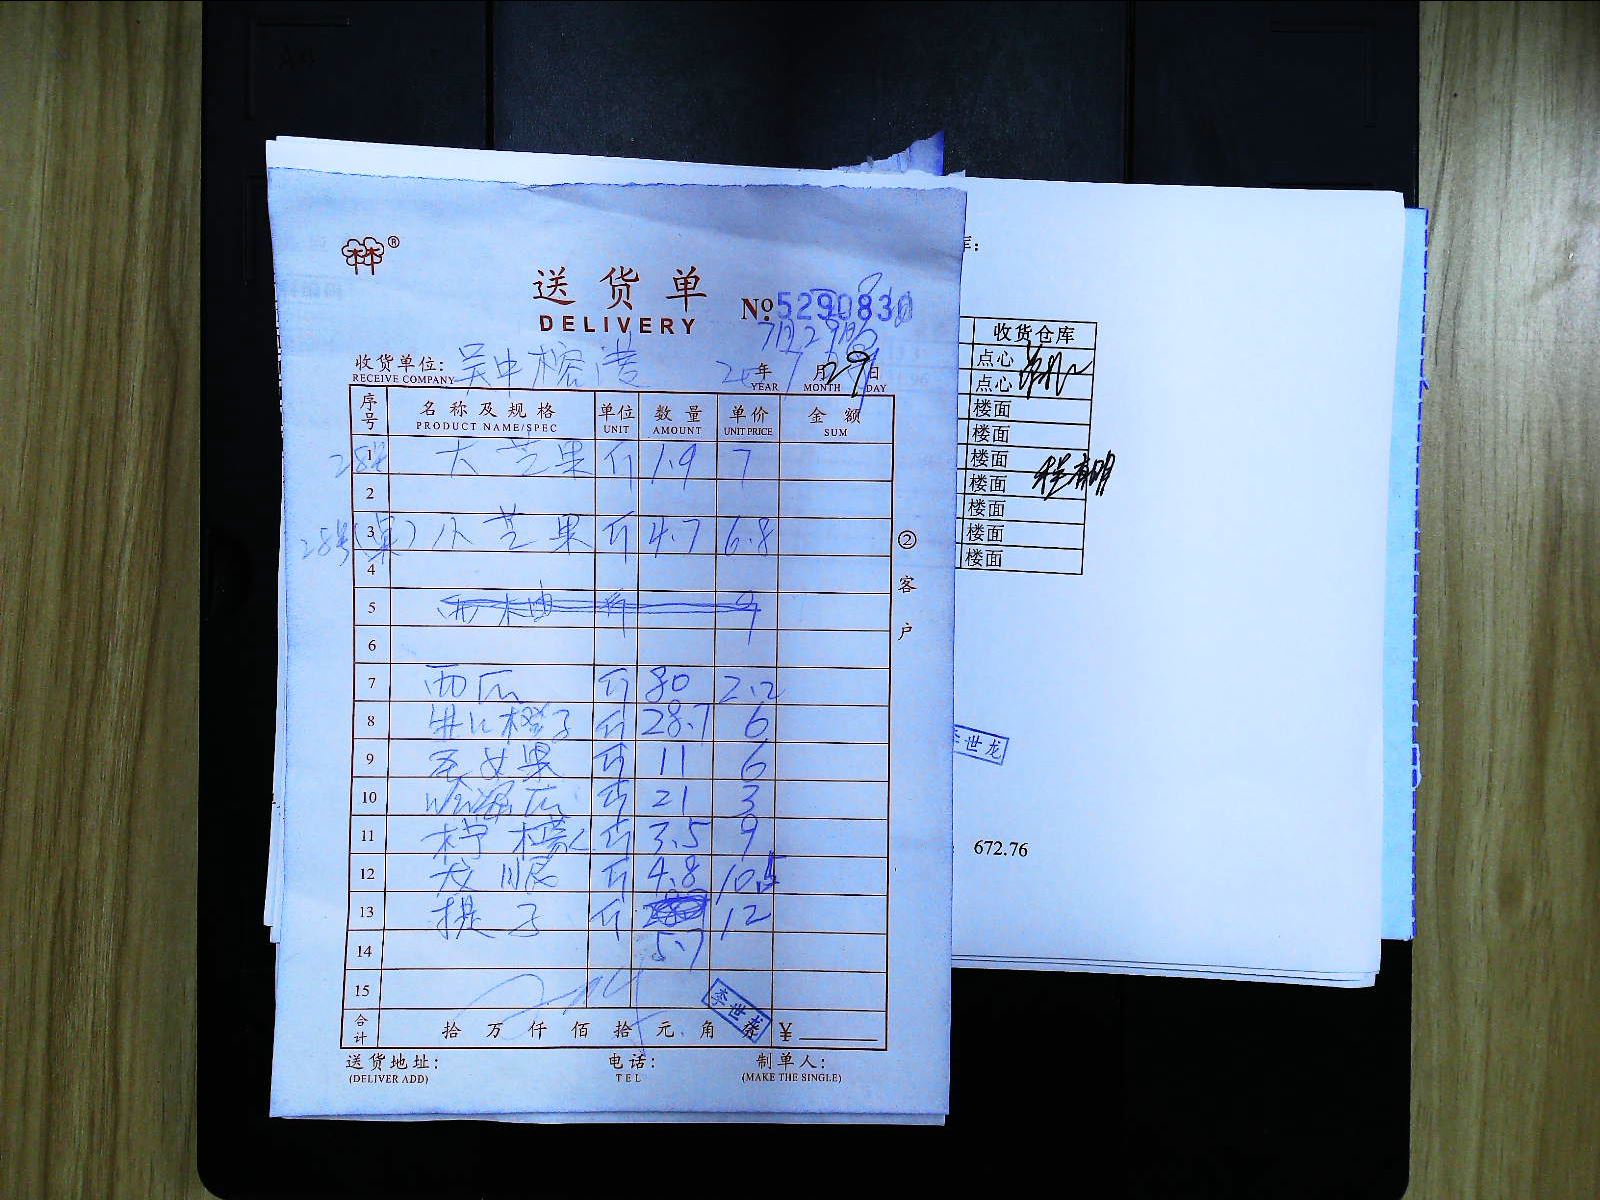 送货单
DELIVERY
№5290830
收货单位: 吴中榕港
RECEIVE COMPANY
7月29
年 7 月 29 日
YEAR MONTH DAY
序号 名称及规格 单位 数量 单价 金额
PRODUCT NAME/SPEC UNIT AMOUNT UNIT PRICE SUM
28号 1 大芒果 斤 1.9 7
2
28号(桌) 3 小芒果 斤 4.7 6.8
4
5 斤 9
6
7 西瓜 斤 80 2.2
8 进口橙子 斤 28.7 6
9 圣女果 斤 11 6
10 哈蜜瓜 斤 21 3
11 柠檬 斤 3.5 9
12 龙眼 斤 4.8 10.5
13 提子 斤 12
14 5.7
15
合计 拾 万 仟 佰 拾 元 角 ¥
李世龙
送货地址: 电话: 制单人:
(DELIVER ADD) TEL (MAKE THE SINGLE)
②客户
库:
收货仓库
点心
点心
楼面
楼面
楼面
楼面
楼面
楼面
楼面
李世龙
672.76